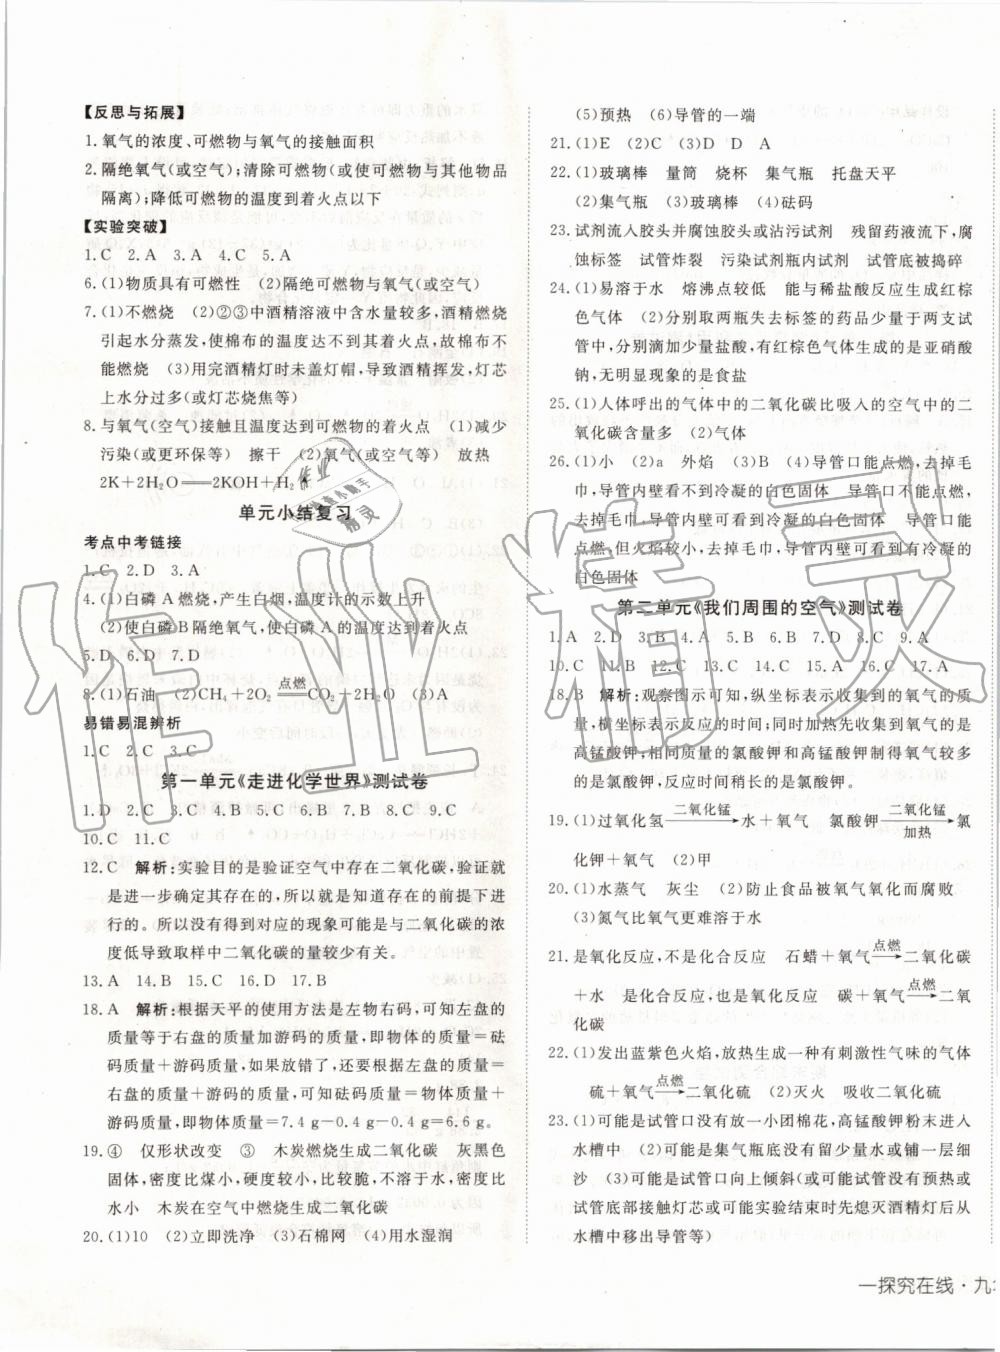 【反思与拓展】
1.氧气的浓度、可燃物与氧气的接触面积
2.隔绝氧气(或空气);清除可燃物(或使可燃物与其他物品
隔离);降低可燃物的温度到着火点以下
【实验突破】
1.C 2.A 3.A 4.C 5.A
6.(1)物质具有可燃性 (2)隔绝可燃物与氧气(或空气)
7.(1)不燃烧 (2)②③中酒精溶液中含水量较多,酒精燃烧
引起水分蒸发,使棉布的温度达不到其着火点,故棉布不
能燃烧 (3)用完酒精灯时未盖灯帽,导致酒精挥发,灯芯
上水分过多(或灯芯烧焦等)
8.与氧气(空气)接触且温度达到可燃物的着火点 (1)减少
污染(或更环保等) 擦干 (2)氧气(或空气等) 放热
2K+2H₂O——2KOH+H₂↑
单元小结复习
考点中考链接
1.C 2.D 3.A
4.(1)白磷A燃烧,产生白烟,温度计的示数上升
(2)使白磷B隔绝氧气、使白磷A的温度达到着火点
5.D 6.D 7.D
8.(1)石油 (2)CH₄+2O₂ 点燃 CO₂+2H₂O (3)A
易错易混辨析
1.C 2.C 3.C
第一单元《走进化学世界》测试卷
1.D 2.C 3.C 4.B 5.C 6.B 7.B 8.B 9.C
10.C 11.C
12.C 解析:实验目的是验证空气中存在二氧化碳,验证就
是进一步确定其存在的,所以就是知道存在的前提下进
行的。所以没有得到对应的现象可能是与二氧化碳的浓
度低导致取样中二氧化碳的量较少有关。
13.A 14.B 15.C 16.D 17.B
18.A 解析:根据天平的使用方法是左物右码,可知左盘的
质量等于右盘的质量加游码的质量,即物体的质量=砝
码质量+游码质量,如果放反了,还要根据左盘的质量=
右盘的质量+游码的质量,可知砝码质量=物体质量+
游码质量,即物体质量=7.4 g-0.4 g-0.4 g=6.6 g。
19.④ 仅形状改变 ③ 木炭燃烧生成二氧化碳 灰黑色
固体,密度比煤小,硬度较小,比较脆,不溶于水,密度比
水小 木炭在空气中燃烧生成二氧化碳
20.(1)10 (2)立即洗净 (3)石棉网 (4)用水湿润
(5)预热 (6)导管的一端
21.(1)E (2)C (3)D D A
22.(1)玻璃棒 量筒 烧杯 集气瓶 托盘天平
(2)集气瓶 (3)玻璃棒 (4)砝码
23.试剂流入胶头并腐蚀胶头或沾污试剂 残留药液流下,腐
蚀标签 试管炸裂 污染试剂瓶内试剂 试管底被捣碎
24.(1)易溶于水 熔沸点较低 能与稀盐酸反应生成红棕
色气体 (2)分别取两瓶失去标签的药品少量于两支试
管中,分别滴加少量盐酸,有红棕色气体生成的是亚硝酸
钠,无明显现象的是食盐
25.(1)人体呼出的气体中的二氧化碳比吸入的空气中的二
氧化碳含量多 (2)气体
26.(1)小 (2)a 外焰 (3)B (4)导管口能点燃,去掉毛
巾,导管内壁看不到冷凝的白色固体 导管口不能点燃,
去掉毛巾,导管内壁可看到冷凝的白色固体 导管口能
点燃,但火焰较小,去掉毛巾,导管内壁可看到有冷凝的
白色固体
第二单元《我们周围的空气》测试卷
1.A 2.D 3.B 4.A 5.B 6.D 7.D 8.C 9.A
10.C 11.B 12.C 13.C 14.C 15.C 16.C 17.A
18.B 解析:观察图示可知,纵坐标表示收集到的氧气的质
量,横坐标表示反应的时间;同时加热先收集到氧气的是
高锰酸钾,相同质量的氯酸钾和高锰酸钾制得氧气较多
的是氯酸钾,反应时间较长的是氯酸钾。
19.(1)过氧化氢 二氧化锰 水+氧气 氯酸钾 二氧化锰 加热 氯
化钾+氧气 (2)甲
20.(1)水蒸气 灰尘 (2)防止食品被氧气氧化而腐败
(3)氮气比氧气更难溶于水
21.是氧化反应,不是化合反应 石蜡+氧气 点燃 二氧化碳
+水 是化合反应,也是氧化反应 碳+氧气 点燃 二氧
化碳
22.(1)发出蓝紫色火焰,放热,生成一种有刺激性气味的气体
硫+氧气 点燃 二氧化硫 (2)灭火 吸收二氧化硫
23.(1)可能是试管口没有放一小团棉花,高锰酸钾粉末进入
水槽中 (2)可能是集气瓶底没有留少量水或铺一层细
沙 (3)可能是试管口向上倾斜(或可能是没有预热或
试管底部接触灯芯或可能实验结束时先熄灭酒精灯后从
水槽中移出导管等)
一探究在线·九
作业精灵